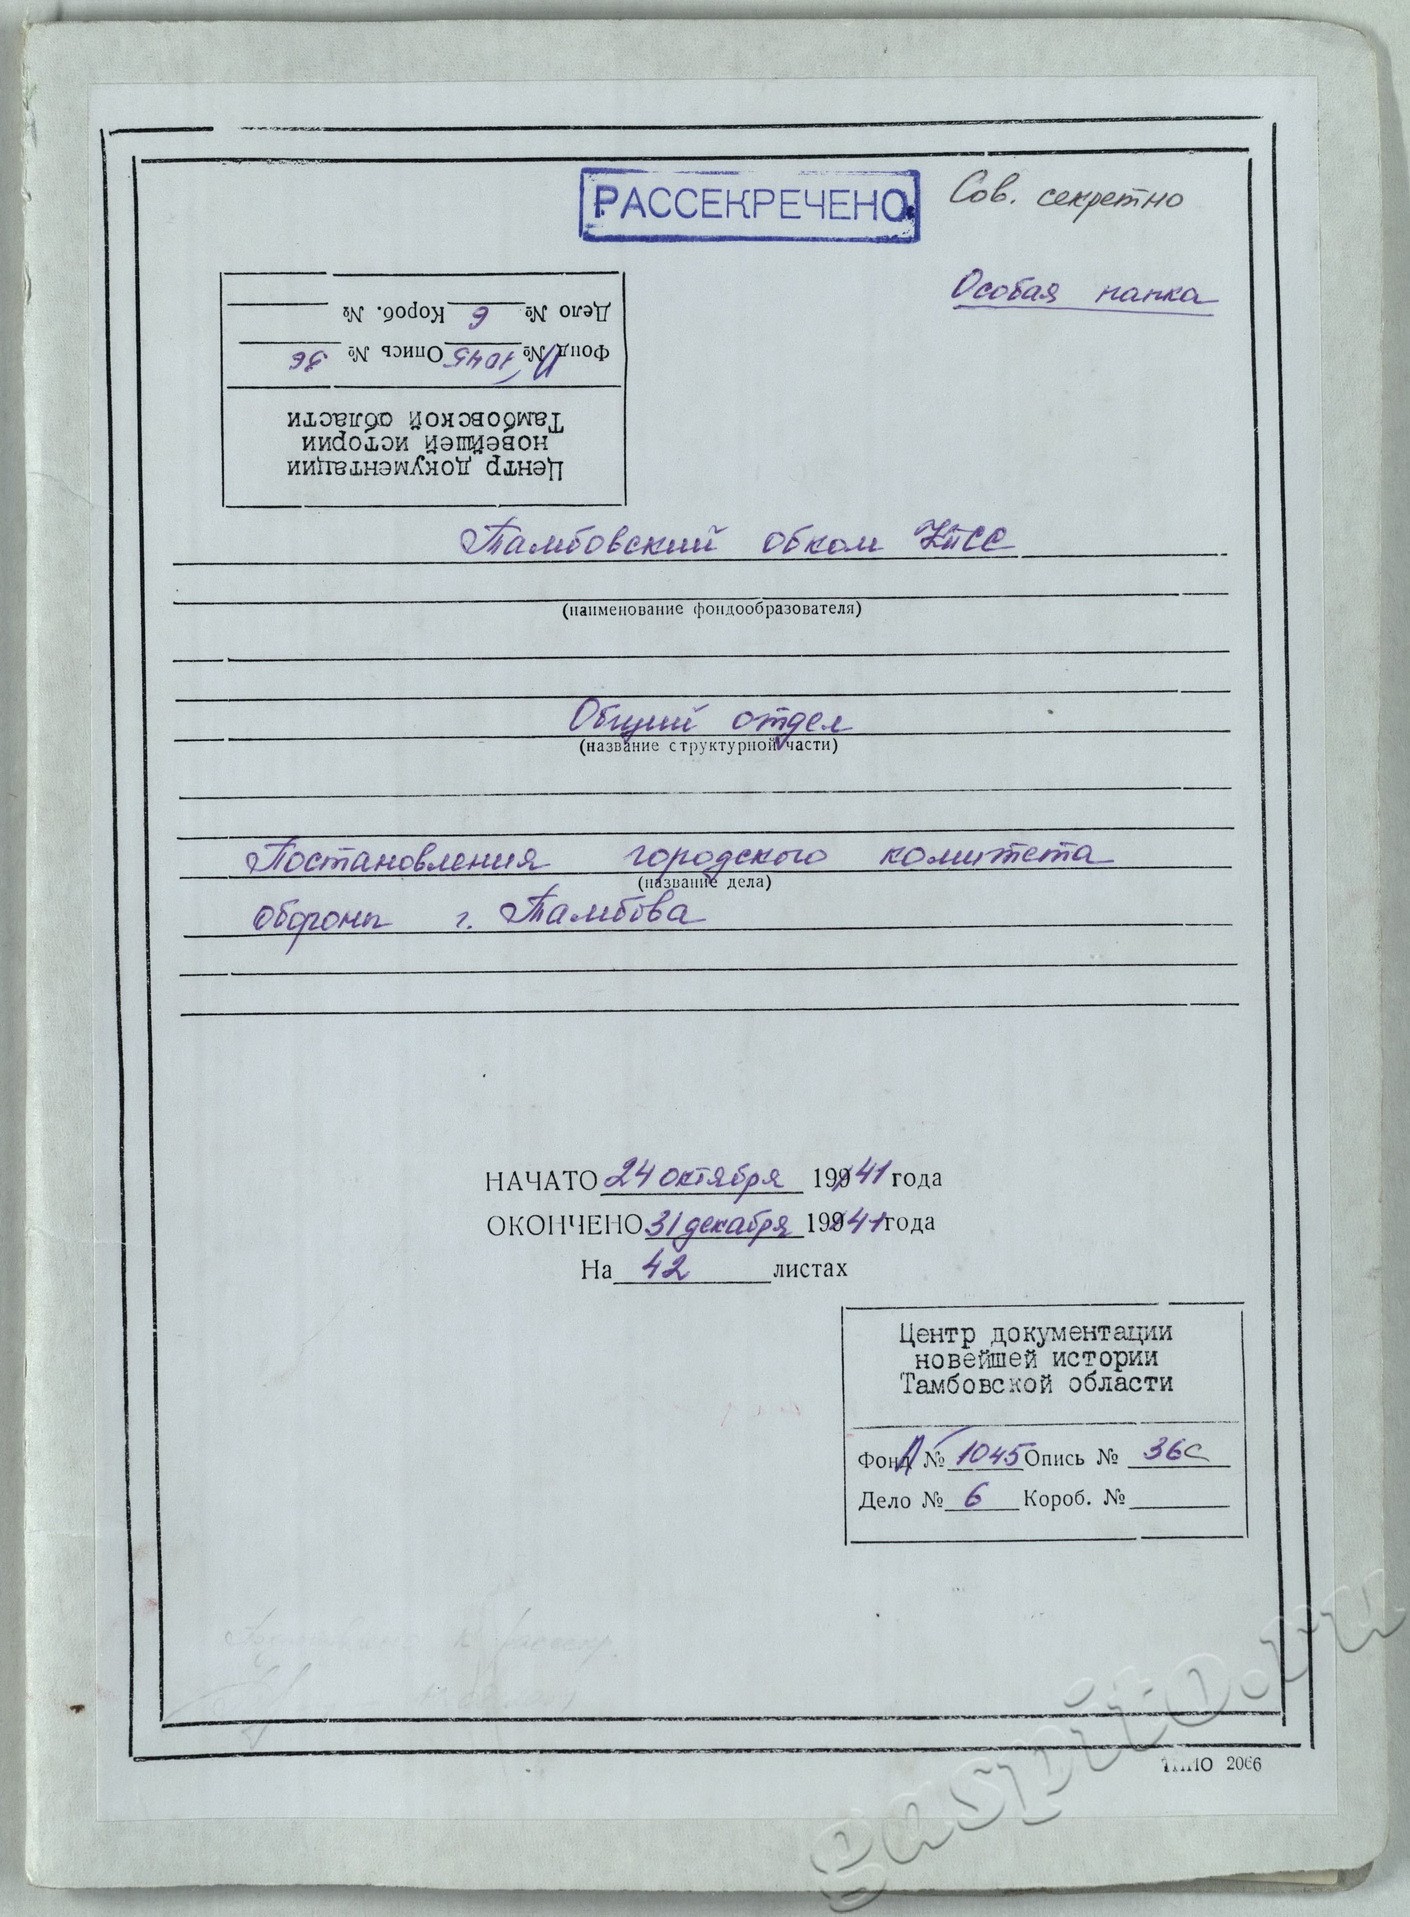 РАССЕКРЕЧЕНО
Сов. секретно
Особая папка
Центр документации
новейшей истории
Тамбовской области
Фонд № П 1045 Опись № 36
Дело № 6 Короб. №
Тамбовский обком КПСС
(наименование фондообразователя)
Общий отдел
(название структурной части)
Постановления городского комитета
(название дела)
обороны г. Тамбова
НАЧАТО 24 октября 1941 года
ОКОНЧЕНО 31 декабря 1941 года
На 42 листах
Центр документации
новейшей истории
Тамбовской области
Фонд П № 1045 Опись № 36с
Дело № 6 Короб. №
2066
gaspito.ru